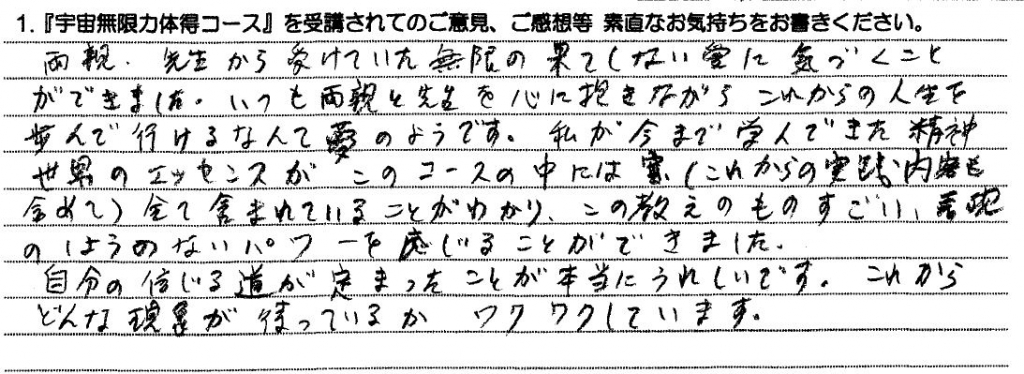 1.『宇宙無限力体得コース』を受講されてのご意見、ご感想等 素直なお気持ちをお書きください。
両親、先生から受けていた無限の果てしない愛に気づくこと
ができました。いつも両親と先生を心に抱きながらこれからの人生を
歩んで行けるなんて夢のようです。私が今まで学んできた精神
世界のエッセンスがこのコースの中には(これからの実践内容も
含めて)全て含まれていることがわかり、この教えのものすごい、表現
のしようのないパワーを感じることができました。
自分の信じる道が定まったことが本当にうれしいです。これから
どんな現象が待っているかワクワクしています。